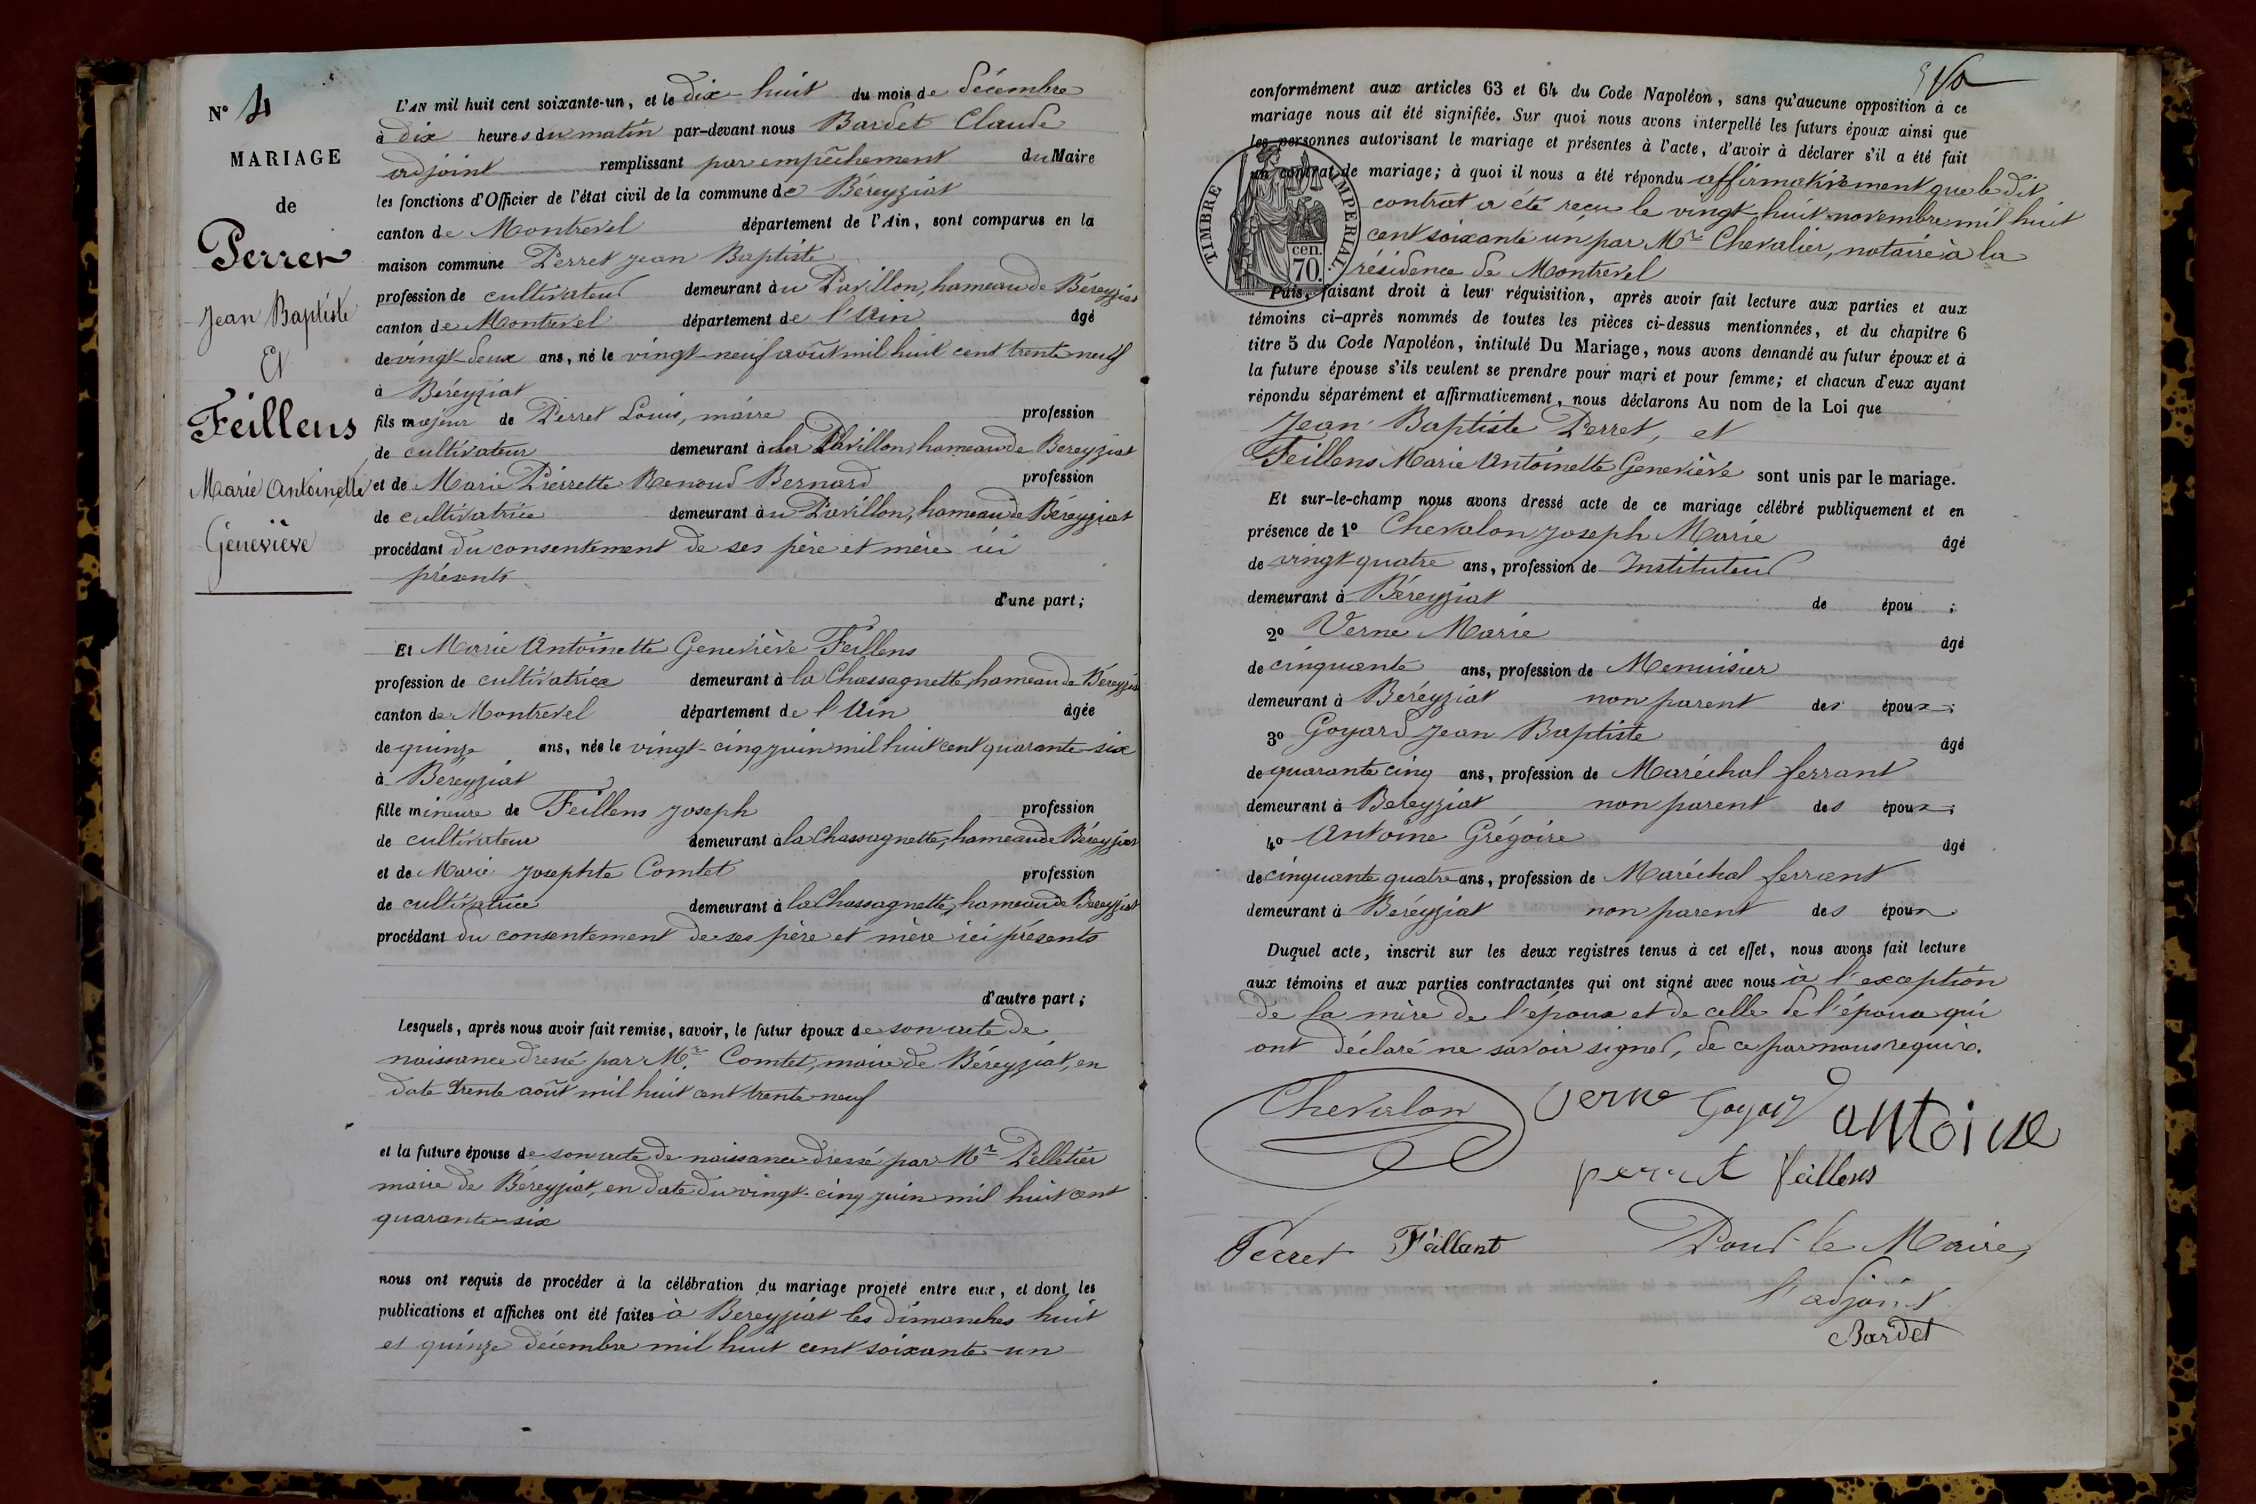 N° 4
MARIAGE
de
Perret
Jean Baptiste
Et
Feillens
Marie Antoinette
Geneviève
L'AN mil huit cent soixante-un, et le dix-huit du mois de décembre
à dix heures du matin par-devant nous Bardet Claude
adjoint remplissant par empêchement du Maire
les fonctions d'Officier de l'état civil de la commune de Béreyziat
canton de Montrevel département de l'Ain, sont comparus en la
maison commune Perret Jean Baptiste
profession de cultivateur demeurant au Pavillon, hameau de Béreyziat
canton de Montrevel département de l'Ain âgé
de vingt-deux ans, né le vingt-neuf août mil huit cent trente neuf
à Béreyziat
fils majeur de Perret Louis, maire profession
de cultivateur demeurant à Pavillon, hameau de Bereyziat
et de Marie Pierrette Renoud Bernard profession
de cultivatrice demeurant au Pavillon, hameau de Béreyziat
procédant du consentement de ses père et mère ici
présents
d'une part;
Et Marie Antoinette Geneviève Feillens
profession de cultivatrice demeurant à la Chassagnette, hameau de Béreyziat
canton de Montrevel département de l'Ain âgée
de quinze ans, née le vingt-cinq juin mil huit cent quarante-six
à Bereyziat
fille mineure de Feillens Joseph profession
de cultivateur demeurant à la Chassagnette, hameau de Béreyziat
et de Marie Josephte Comtet profession
de cultivatrice demeurant à la Chassagnette, hameau de Bereyziat
procédant du consentement de ses père et mère ici présents
d'autre part;
Lesquels, après nous avoir fait remise, savoir, le futur époux de son acte de
naissance dressé par Mr. Comtet, maire de Béreyziat, en
date trente août mil huit cent trente-neuf
et la future épouse de son acte de naissance dressé par Mr Pelletier
maire de Béreyziat, en date du vingt-cinq juin mil huit cent
quarante-six
nous ont requis de procéder à la célébration du mariage projeté entre eux, et dont les
publications et affiches ont été faites à Bereyziat les dimanches huit
et quinze décembre mil huit cent soixante-un
conformément aux articles 63 et 64 du Code Napoléon, sans qu'aucune opposition à ce
mariage nous ait été signifiée. Sur quoi nous avons interpellé les futurs époux ainsi que
les personnes autorisant le mariage et présentes à l'acte, d'avoir à déclarer s'il a été fait
un contrat de mariage; à quoi il nous a été répondu affirmativement que le dit
contrat a été reçu le vingt-huit novembre mil huit
cent soixante un par Mr Chevalier, notaire à la
résidence de Montrevel
TIMBRE IMPERIAL
cen.
70.
Puis, faisant droit à leur réquisition, après avoir fait lecture aux parties et aux
témoins ci-après nommés de toutes les pièces ci-dessus mentionnées, et du chapitre 6
titre 5 du Code Napoléon, intitulé Du Mariage, nous avons demandé au futur époux et à
la future épouse s'ils veulent se prendre pour mari et pour femme; et chacun d'eux ayant
répondu séparément et affirmativement, nous déclarons Au nom de la Loi que
Jean Baptiste Perret, et
Feillens Marie Antoinette Geneviève sont unis par le mariage.
Et sur-le-champ nous avons dressé acte de ce mariage célébré publiquement et en
présence de 1° Chevalon Joseph Marie âgé
de vingt-quatre ans, profession de Instituteur
demeurant à Béreyziat de épou ;
2° Verne Marie âgé
de cinquante ans, profession de Menuisier
demeurant à Beréyziat non parent des époux;
3° Goyard Jean Baptiste âgé
de quarante cinq ans, profession de Maréchal ferrant
demeurant à Bereyziat non parent des époux;
4° Antoine Grégoire âgé
de cinquante quatre ans, profession de Maréchal ferrant
demeurant à Beréyziat non parent des époux
Duquel acte, inscrit sur les deux registres tenus à cet effet, nous avons fait lecture
aux témoins et aux parties contractantes qui ont signé avec nous à l'exception
de la mère de l'époux et de celle de l'épouse qui
ont déclaré ne savoir signer, de ce par nous requis.
Chevalon Verne Goyard antoine
perret feillens
Perret Feillant Pour le Maire,
l'adjoint
Bardet